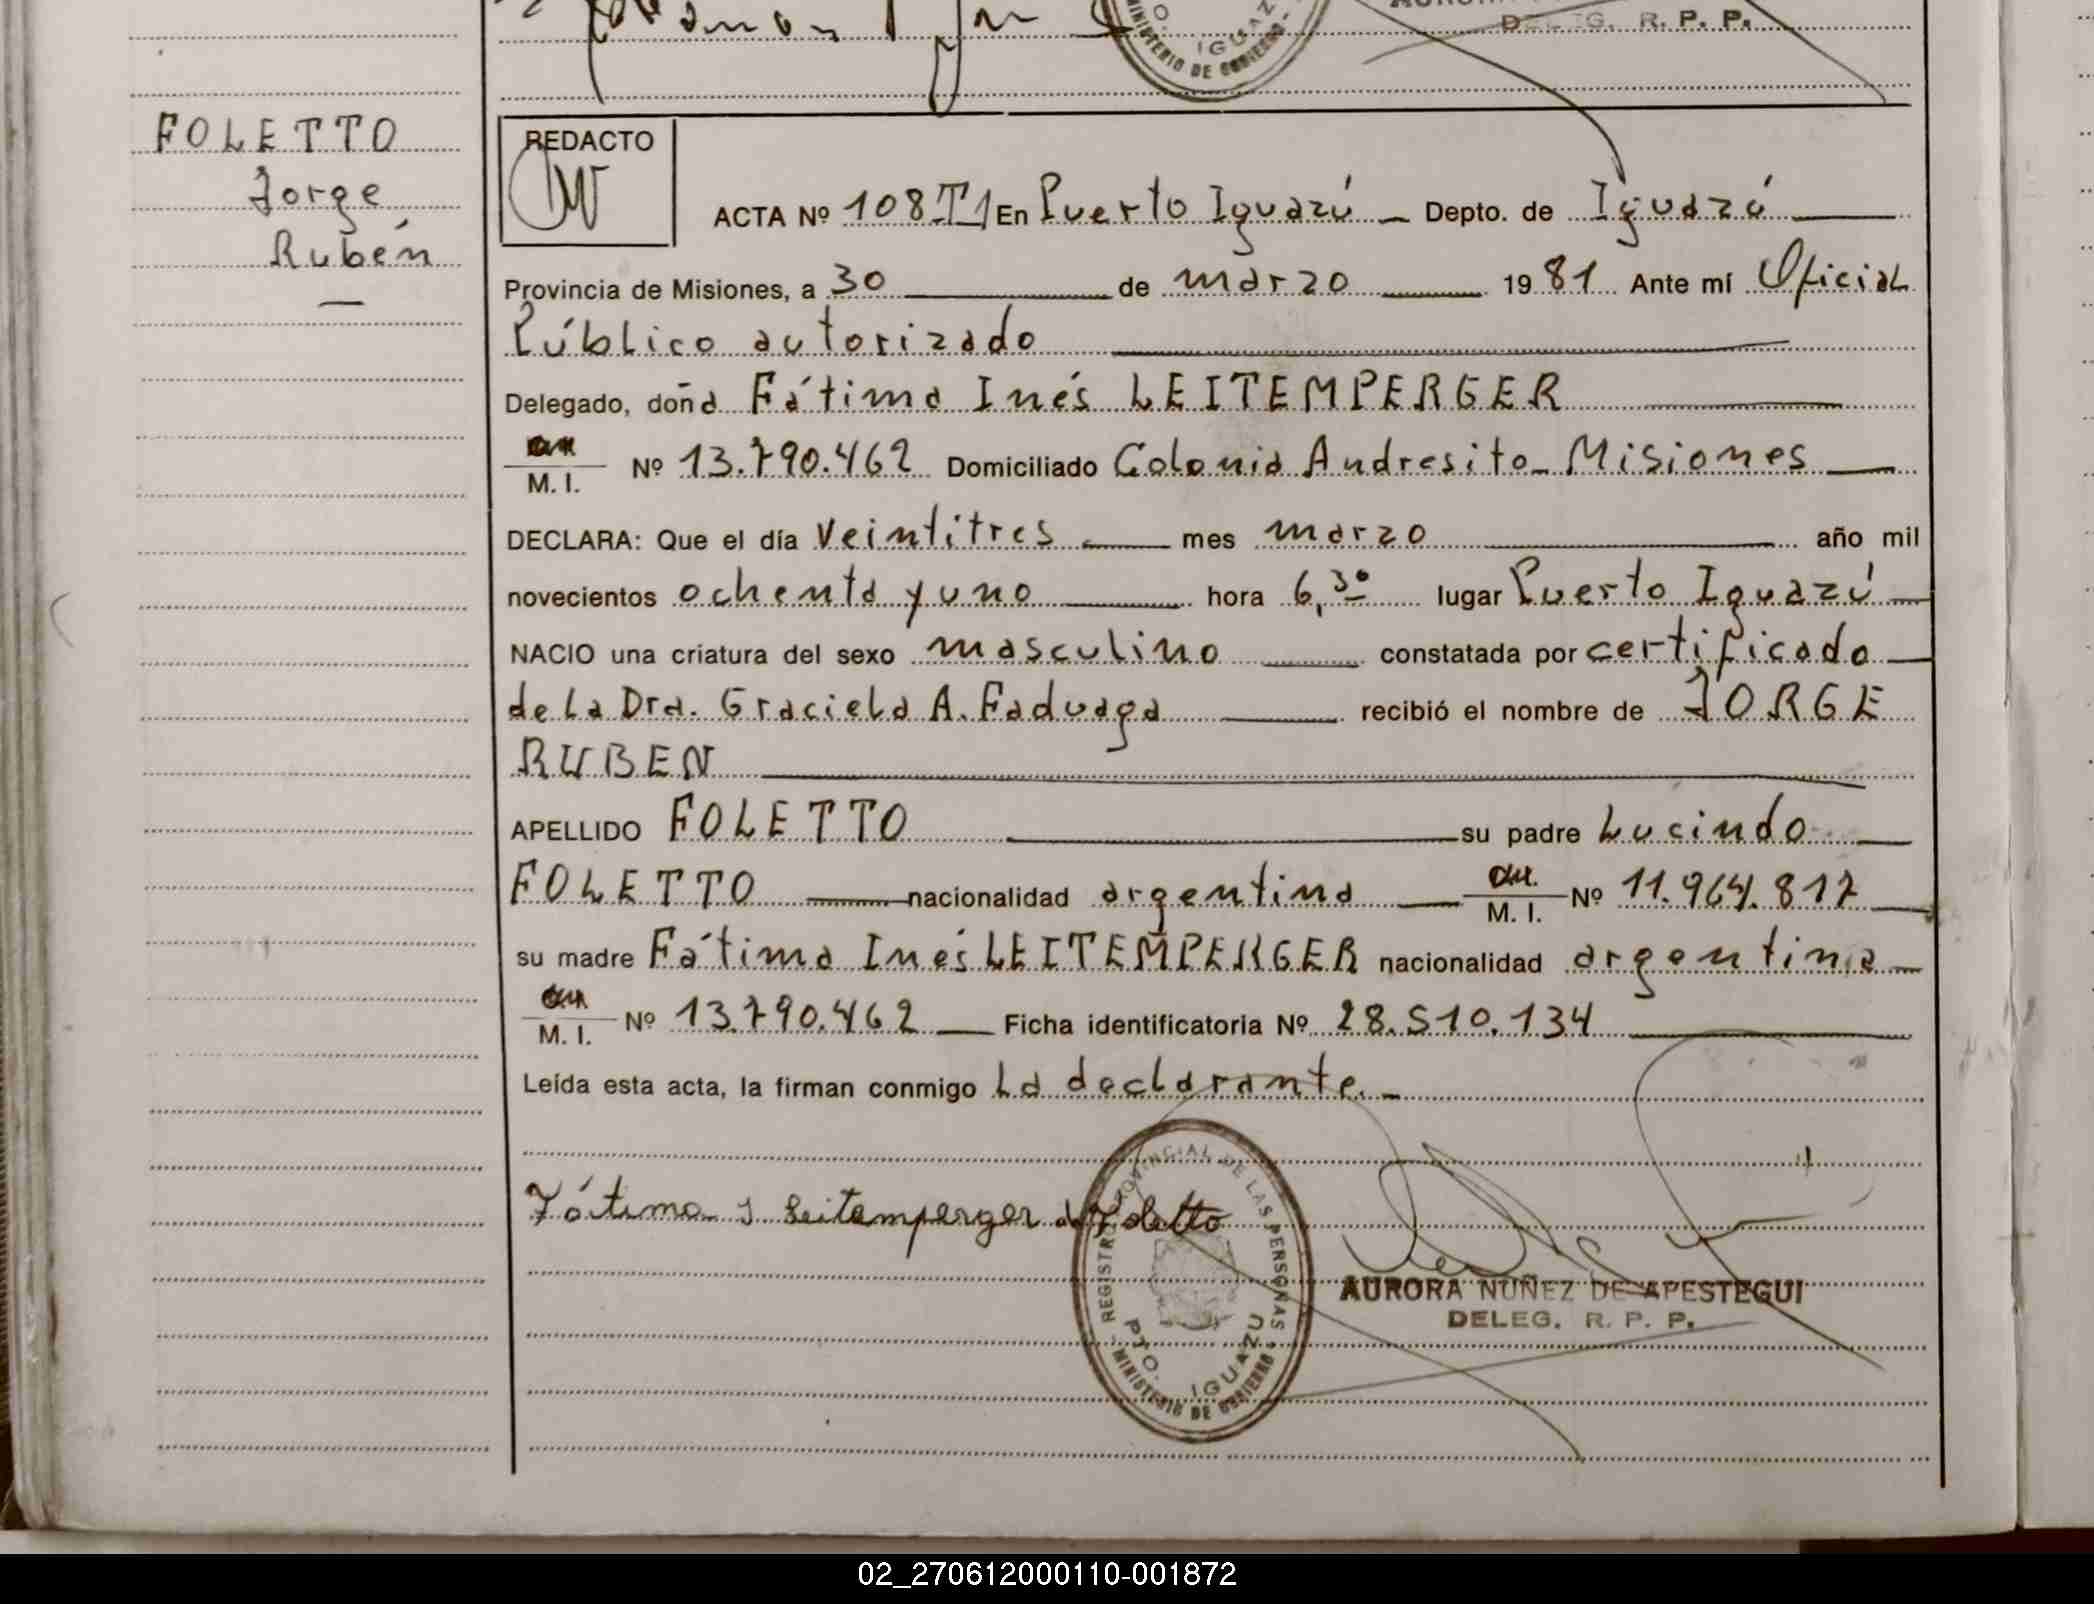 DELEG. R. P. P.
IGUAZU
MINISTERIO DE GOBIERNO
FOLETTO
Jorge
Rubén
REDACTO
ACTA Nº 108 T1 En Puerto Iguazú Depto. de Iguazú
Provincia de Misiones, a 30 de marzo 1981 Ante mí Oficial
Público autorizado
Delegado, doña Fátima Inés LEITEMPERGER
M. I. Nº 13.790.462 Domiciliado Colonia Andresito - Misiones
DECLARA: Que el día veintitres mes marzo año mil
novecientos ochenta y uno hora 6,30 lugar Puerto Iguazú
NACIO una criatura del sexo masculino constatada por certificado
de la Dra. Graciela A. Faduaga recibió el nombre de JORGE
RUBEN
APELLIDO FOLETTO su padre Lucindo
FOLETTO nacionalidad argentina M. I. Nº 11.964.817
su madre Fátima Inés LEITEMPERGER nacionalidad argentina
M. I. Nº 13.790.462 Ficha identificatoria Nº 28.510.134
Leída esta acta, la firman conmigo la declarante.
Fátima I Leitemperger de Foletto
REGISTRO PROVINCIAL DE LAS PERSONAS
PTO. IGUAZU
MINISTERIO DE GOBIERNO
AURORA NUÑEZ DE APESTEGUI
DELEG. R. P. P.
02_270612000110-001872